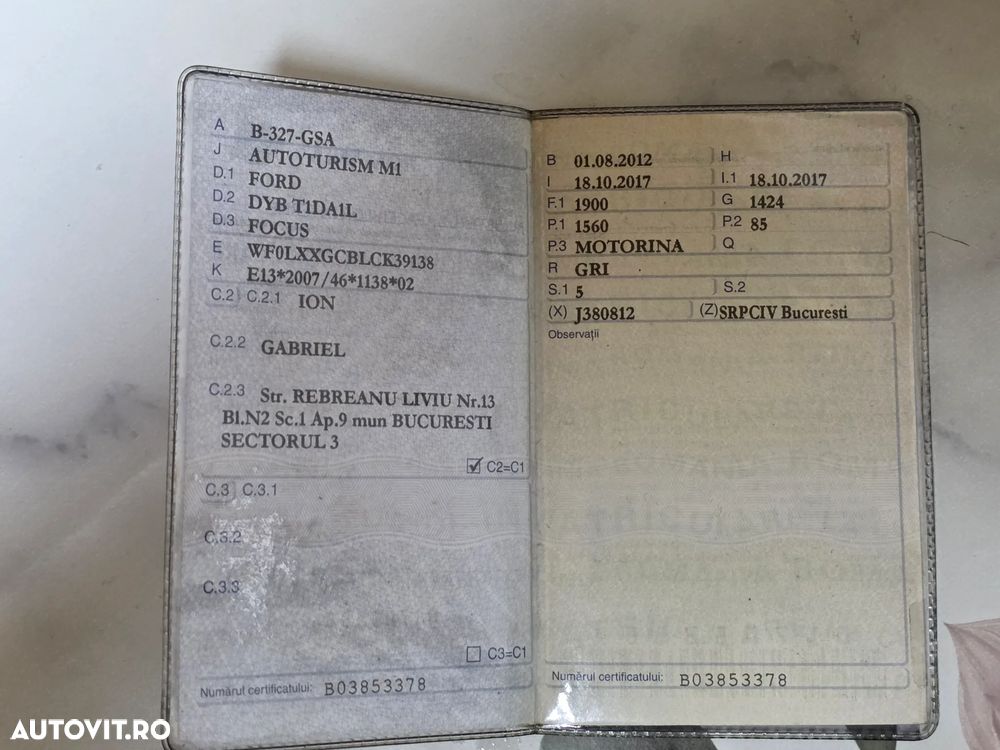 A B-327-GSA
J AUTOTURISM M1
D.1 FORD
D.2 DYB T1DA1L
D.3 FOCUS
E WF0LXXGCBLCK39138
K E13*2007/46*1138*02
C.2 C.2.1 ION
C.2.2 GABRIEL
C.2.3 Str. REBREANU LIVIU Nr.13
Bl.N2 Sc.1 Ap.9 mun BUCURESTI
SECTORUL 3
C2=C1
C.3 C.3.1
C.3.2
C.3.3
C3=C1
Numărul certificatului: B03853378
B 01.08.2012 H
I 18.10.2017 I.1 18.10.2017
F.1 1900 G 1424
P.1 1560 P.2 85
P.3 MOTORINA Q
R GRI
S.1 5 S.2
(X) J380812 (Z) SRPCIV Bucuresti
Observații
Numărul certificatului: B03853378
AUTOVIT.RO